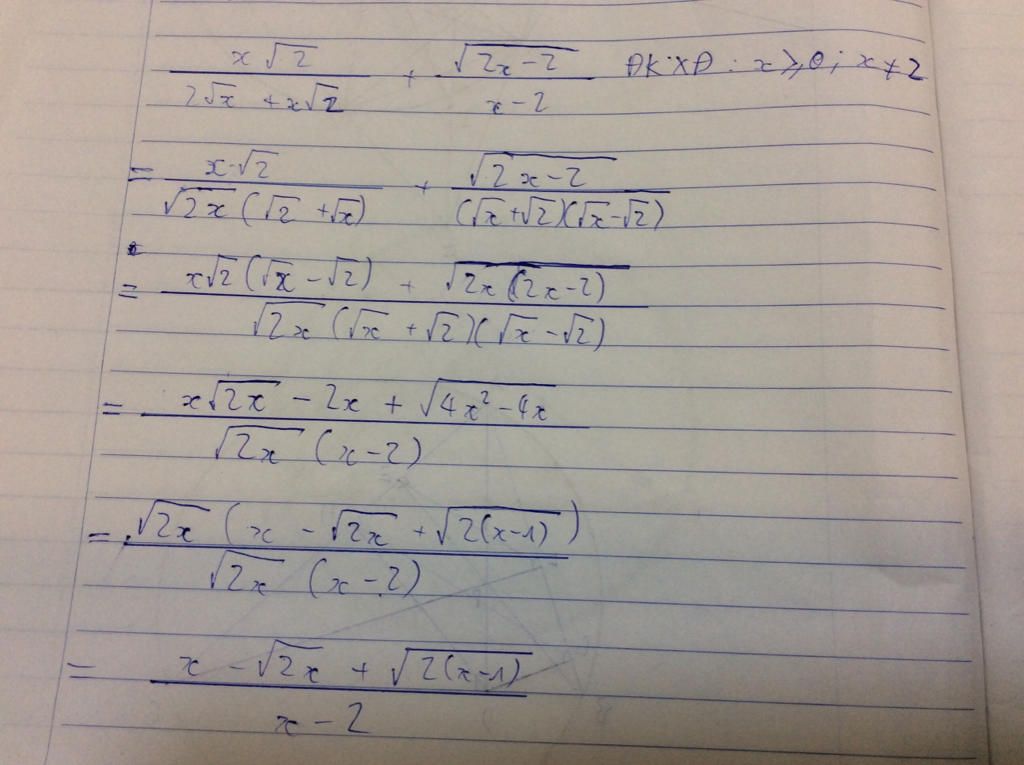 x√2 / (2√x + x√2) + √(2x-2) / (x-2) ĐKXĐ: x ≥ 0; x ≠ 2
= x·√2 / (√(2x) (√2 + √x)) + √(2x-2) / ((√x+√2)(√x-√2))
= (x√2 (√x - √2) + √(2x(2x-2))) / (√(2x) (√x + √2)(√x - √2))
= (x√(2x) - 2x + √(4x² - 4x)) / (√(2x) (x-2))
= √(2x) (x - √(2x) + √(2(x-1))) / (√(2x) (x-2))
= (x - √(2x) + √(2(x-1))) / (x-2)